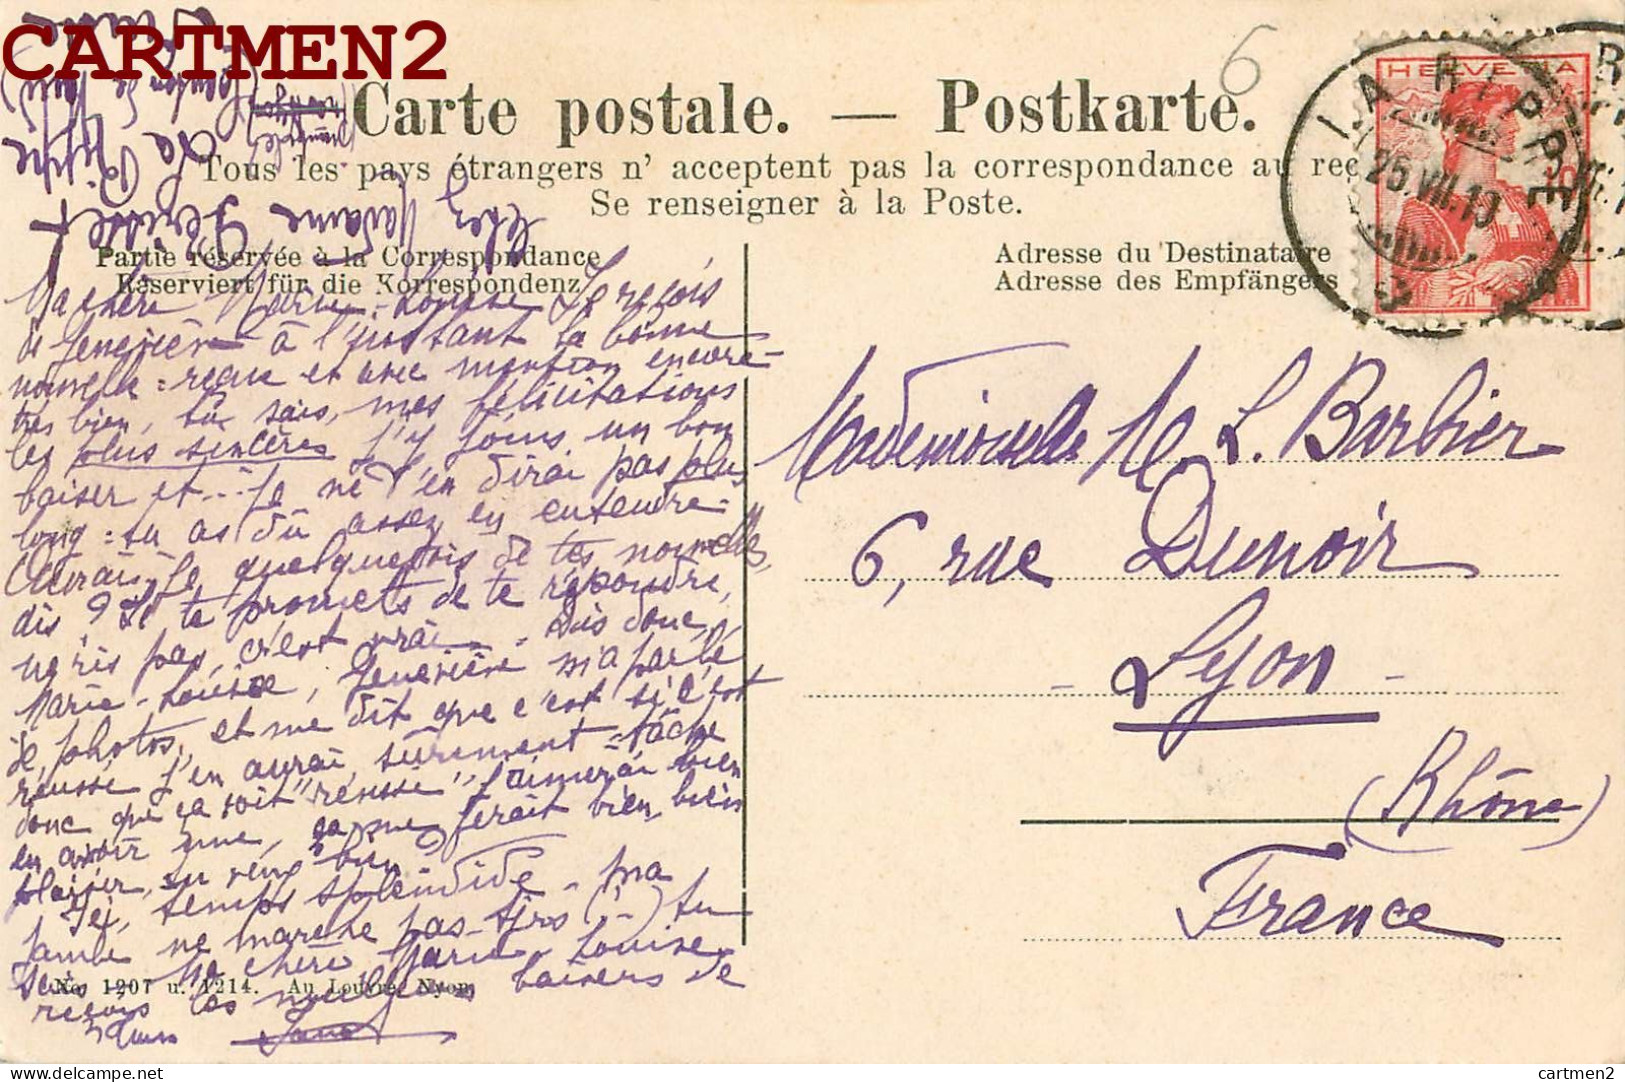 CARTMEN2
6
Carte postale. — Postkarte.
Tous les pays étrangers n' acceptent pas la correspondance au reç
Se renseigner à la Poste.
HELVETIA
LA RIPPE
25.VII.10
chez Madame
La Rippe
Partie réservée à la Correspondance
Reserviert für die Korrespondenz
Adresse du Destinataire
Adresse des Empfängers
Ma chère Marie-Louise Je reçois
de Geneviève à l'instant la bonne
nouvelle : reçue et avec mention encore
très bien, tu sais, mes félicitations
les plus sincères j'y joins un bon
baiser et... je ne t'en dirai pas plus
long : tu as dû assez en entendre -
Aurais-je quelquefois de tes nouvelles,
dis ? Je te promets de te répondre,
ne ris pas, c'est vrai - Dis donc,
Marie-Louise, Geneviève m'a parlé
de photos, et me dit que c'est si c'est
réussi j'en aurai sûrement - tâche
donc que ça soit "réussi" j'aimerai bien
en avoir une, ça me ferait bien, bien
plaisir,
Ici, temps splendide - ma
jambe ne marche pas tjrs (!-) tu
sais - Ma chère Marie Louise
reçois les meilleurs baisers de
Mademoiselle M. L. Barbier
6, rue Dunoir
- Lyon -
(Rhône)
France
No. 1207 u. 1214. Au Louvre, Nyon
delcampe.net
cartmen2